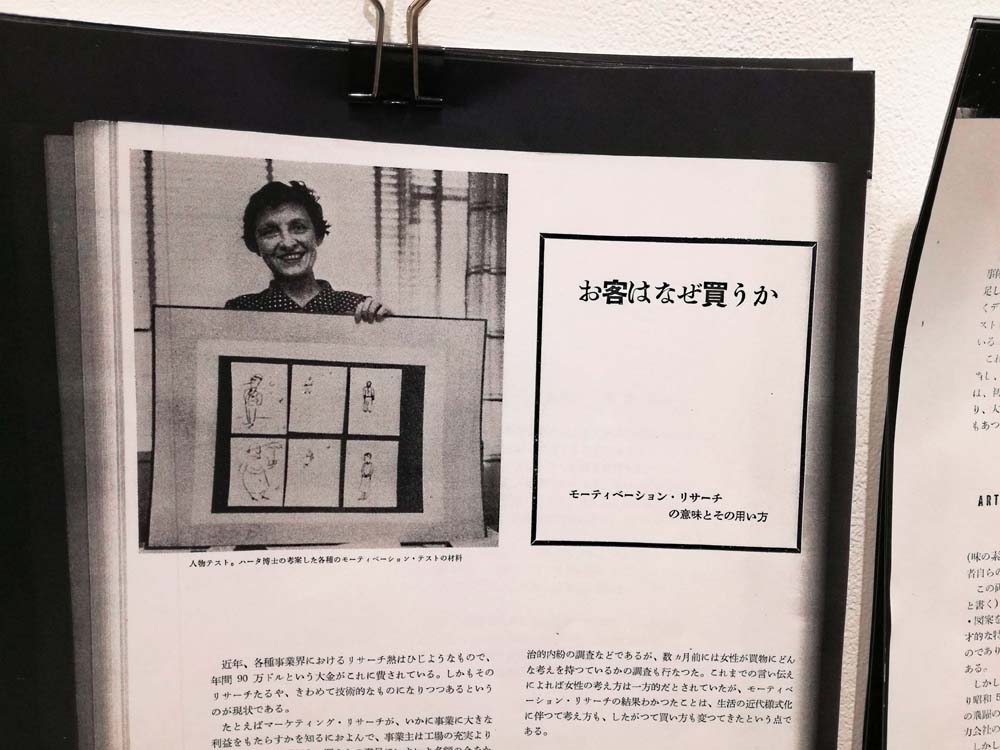 お客はなぜ買うか
モーティベーション・リサーチ
の意味とその用い方
人物テスト。ハータ博士の考案した各種のモーティベーション・テストの材料
近年、各種事業界におけるリサーチ熱はひじようなもので、
年間 90 万ドルという大金がこれに費されている。しかもその
リサーチたるや、きわめて技術的なものになりつつあるという
のが現状である。
たとえばマーケティング・リサーチが、いかに事業に大きな
利益をもたらすかを知るにおよんで、事業主は工場の充実より
治的内紛の調査などであるが、数ヵ月前には女性が買物にどん
な考えを持つているかの調査も行なつた。これまでの言い伝え
によれば女性の考え方は一方的だとされていたが、モーティベ
ーション・リサーチの結果わかつたことは、生活の近代様式化
に伴つて考え方も、したがつて買い方も変つてきたという点で
ある。
足し
くデ
スト
いる
これ
当し、
は、
り、人
もあつ
ART
(味の素
者自らの
この
と書く)
・図案を
才的な
のであり
ある。
しかし
り昭和 5
の飛躍の
力会社の
しかし